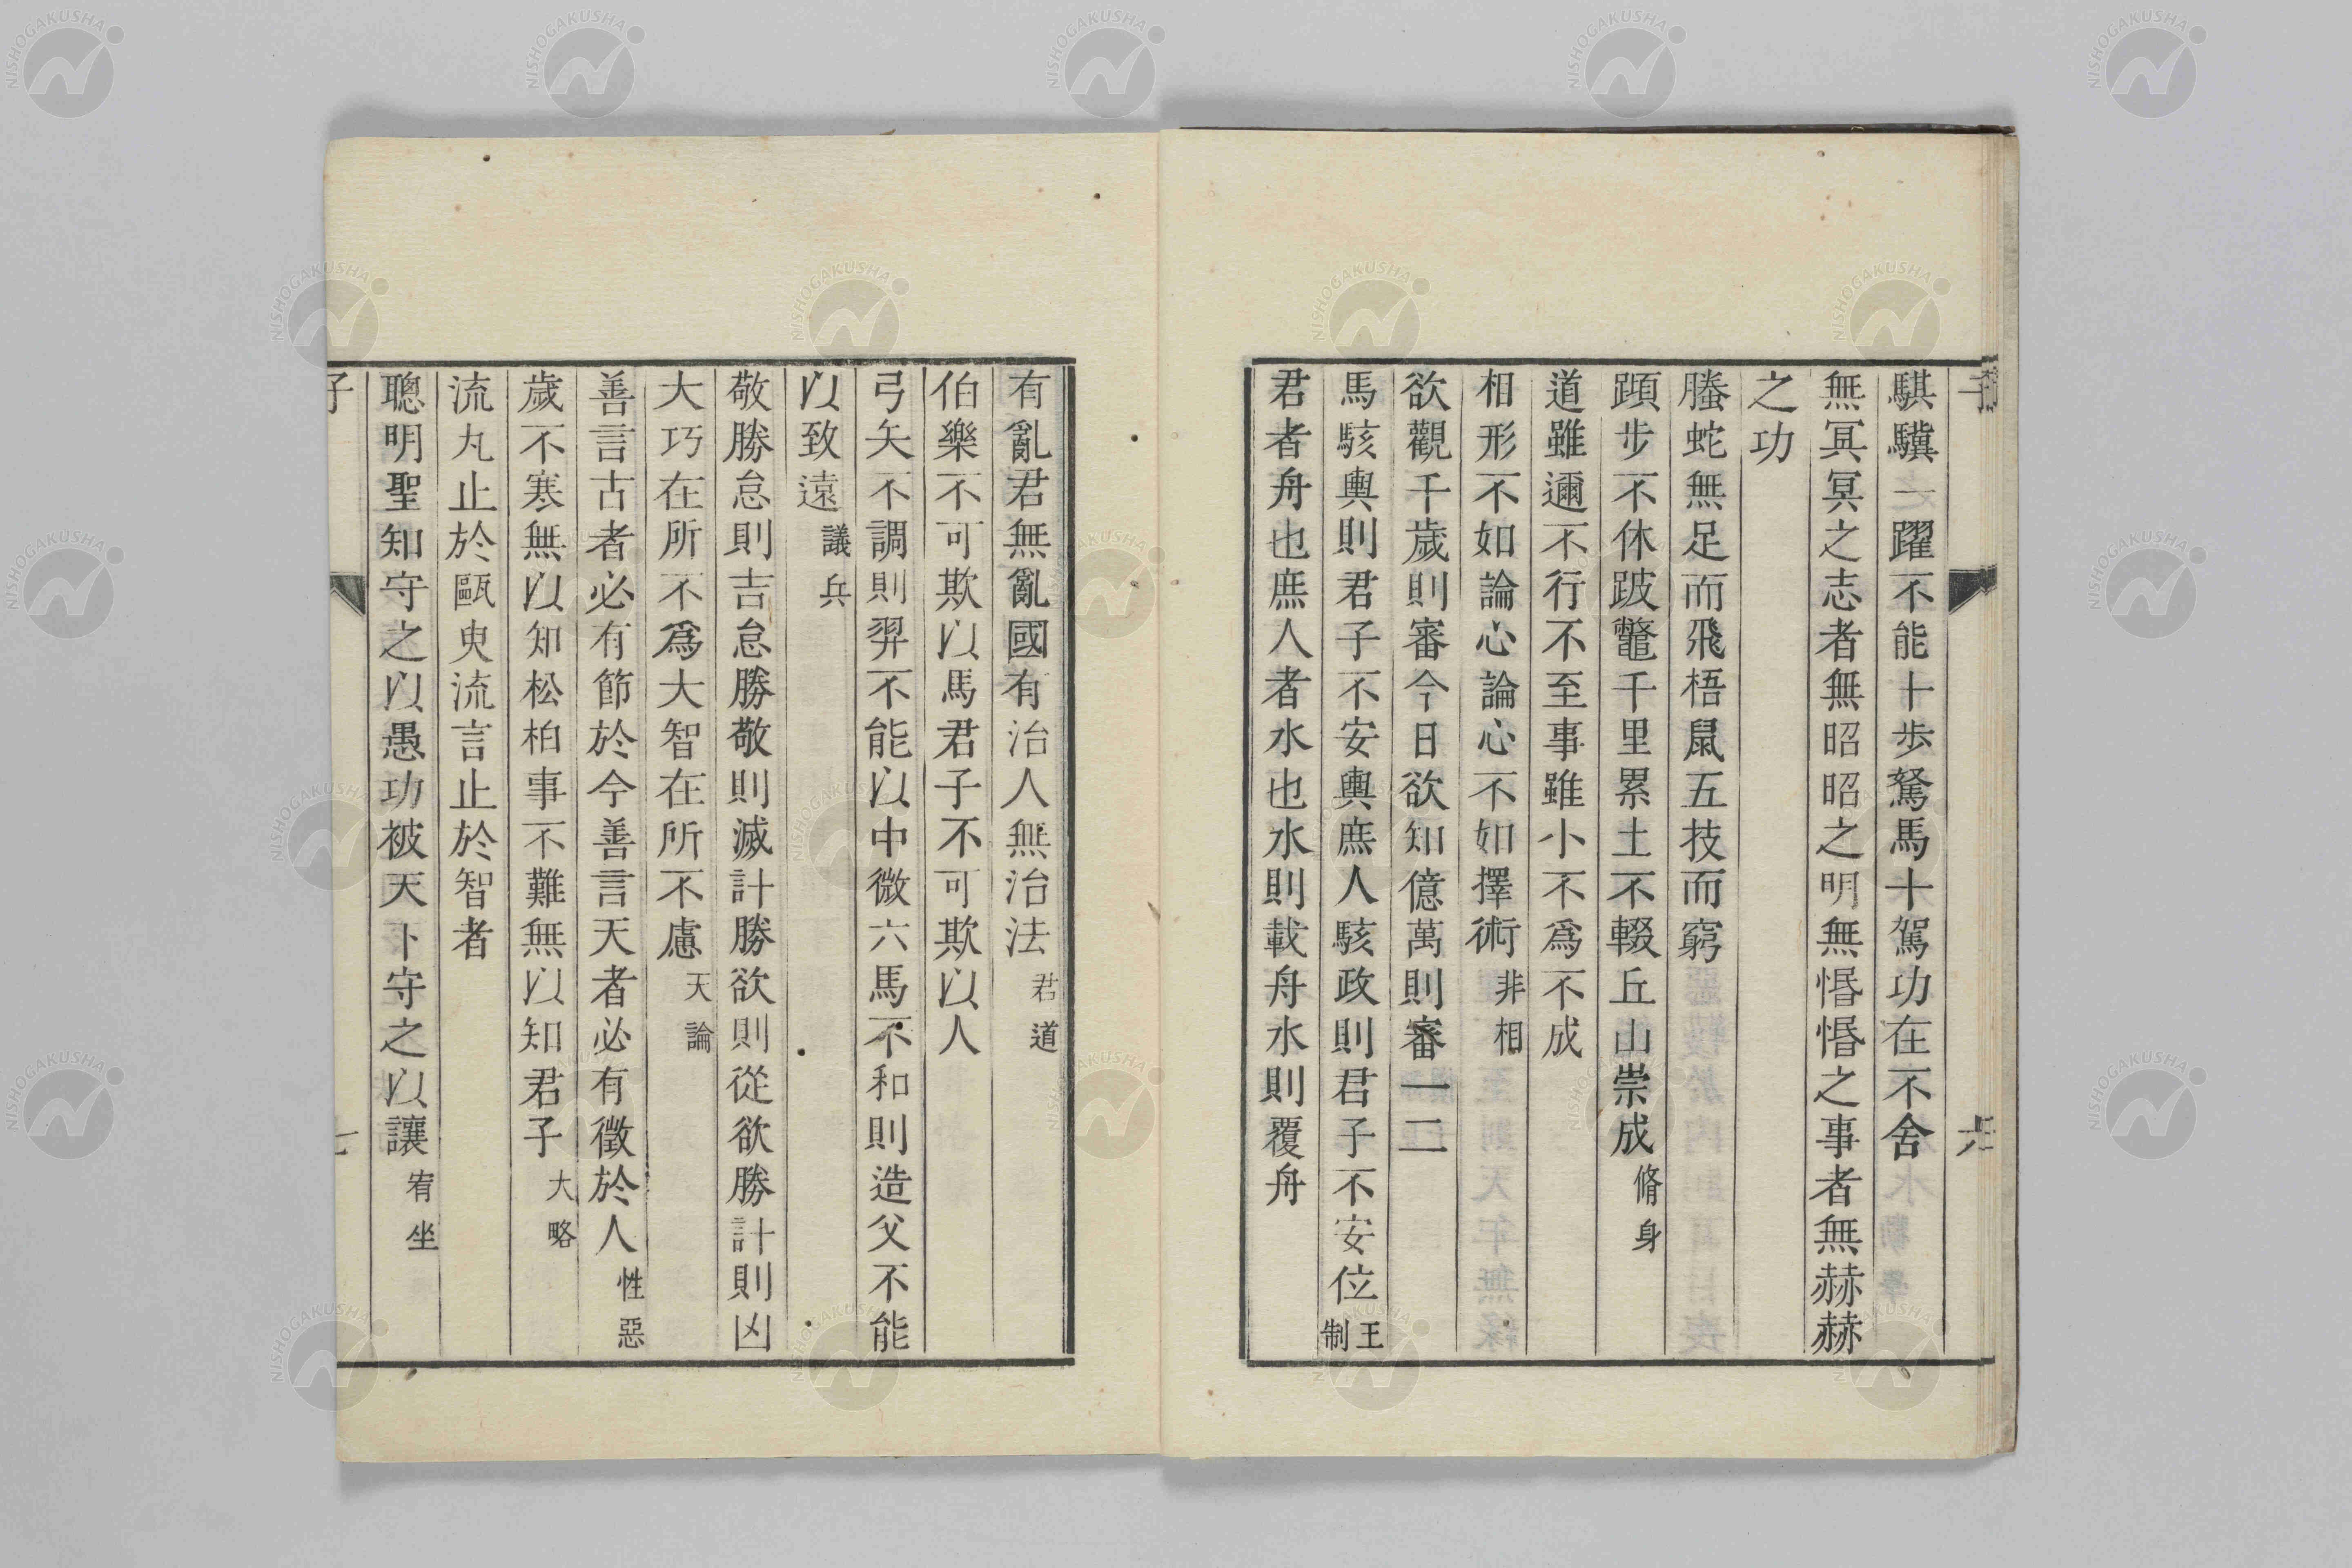 騏驥一躍不能十步駑馬十駕功在不舍
無冥冥之志者無昭昭之明無惛惛之事者無赫赫
之功
螣蛇無足而飛梧鼠五技而窮
蹞步不休跛鼈千里累土不輟丘山崇成 脩身
道雖邇不行不至事雖小不爲不成
相形不如論心論心不如擇術 非相
欲觀千歲則審今日欲知億萬則審一二
馬駭輿則君子不安輿庶人駭政則君子不安位 王制
君者舟也庶人者水也水則載舟水則覆舟
有亂君無亂國有治人無治法 君道
伯樂不可欺以馬君子不可欺以人
弓矢不調則羿不能以中微六馬不和則造父不能
以致遠 議兵
敬勝怠則吉怠勝敬則滅計勝欲則從欲勝計則凶
大巧在所不爲大智在所不慮 天論
善言古者必有節於今善言天者必有徵於人 性惡
歲不寒無以知松柏事不難無以知君子 大略
流丸止於甌臾流言止於智者
聰明聖知守之以愚功被天下守之以讓 宥坐
NISHOGAKUSHA